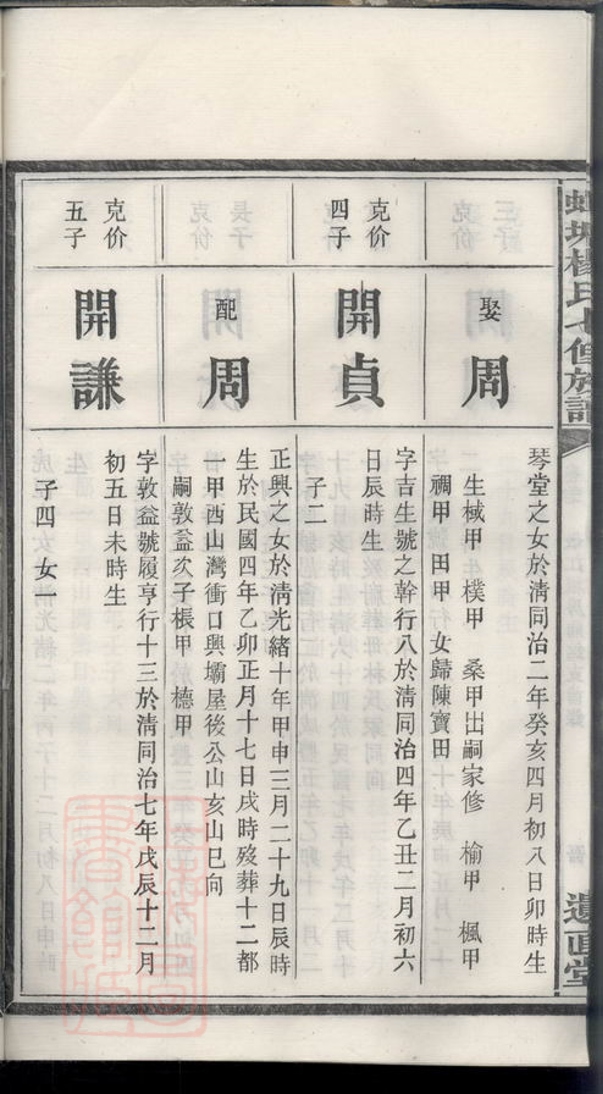 楊氏七修族譜
娶
周
琴堂之女於清同治二年癸亥四月初八日卯時生
生棫甲 樸甲 桑甲出嗣家修 榆甲 楓甲
禂甲 田甲 女歸陳寶田
克价
四子
開貞
字吉生號之幹行八於清同治四年乙丑二月初六
日辰時生
子二
配
周
正興之女於清光緒十年甲申三月二十九日辰時
生於民國四年乙卯正月十七日戌時歿葬十二都
一甲西山灣衝口興壩屋後公山亥山巳向
嗣敦益次子棖甲 橞甲
克价
五子
開謙
字敦益號履亨行十三於清同治七年戊辰十二月
初五日未時生
子四 女一